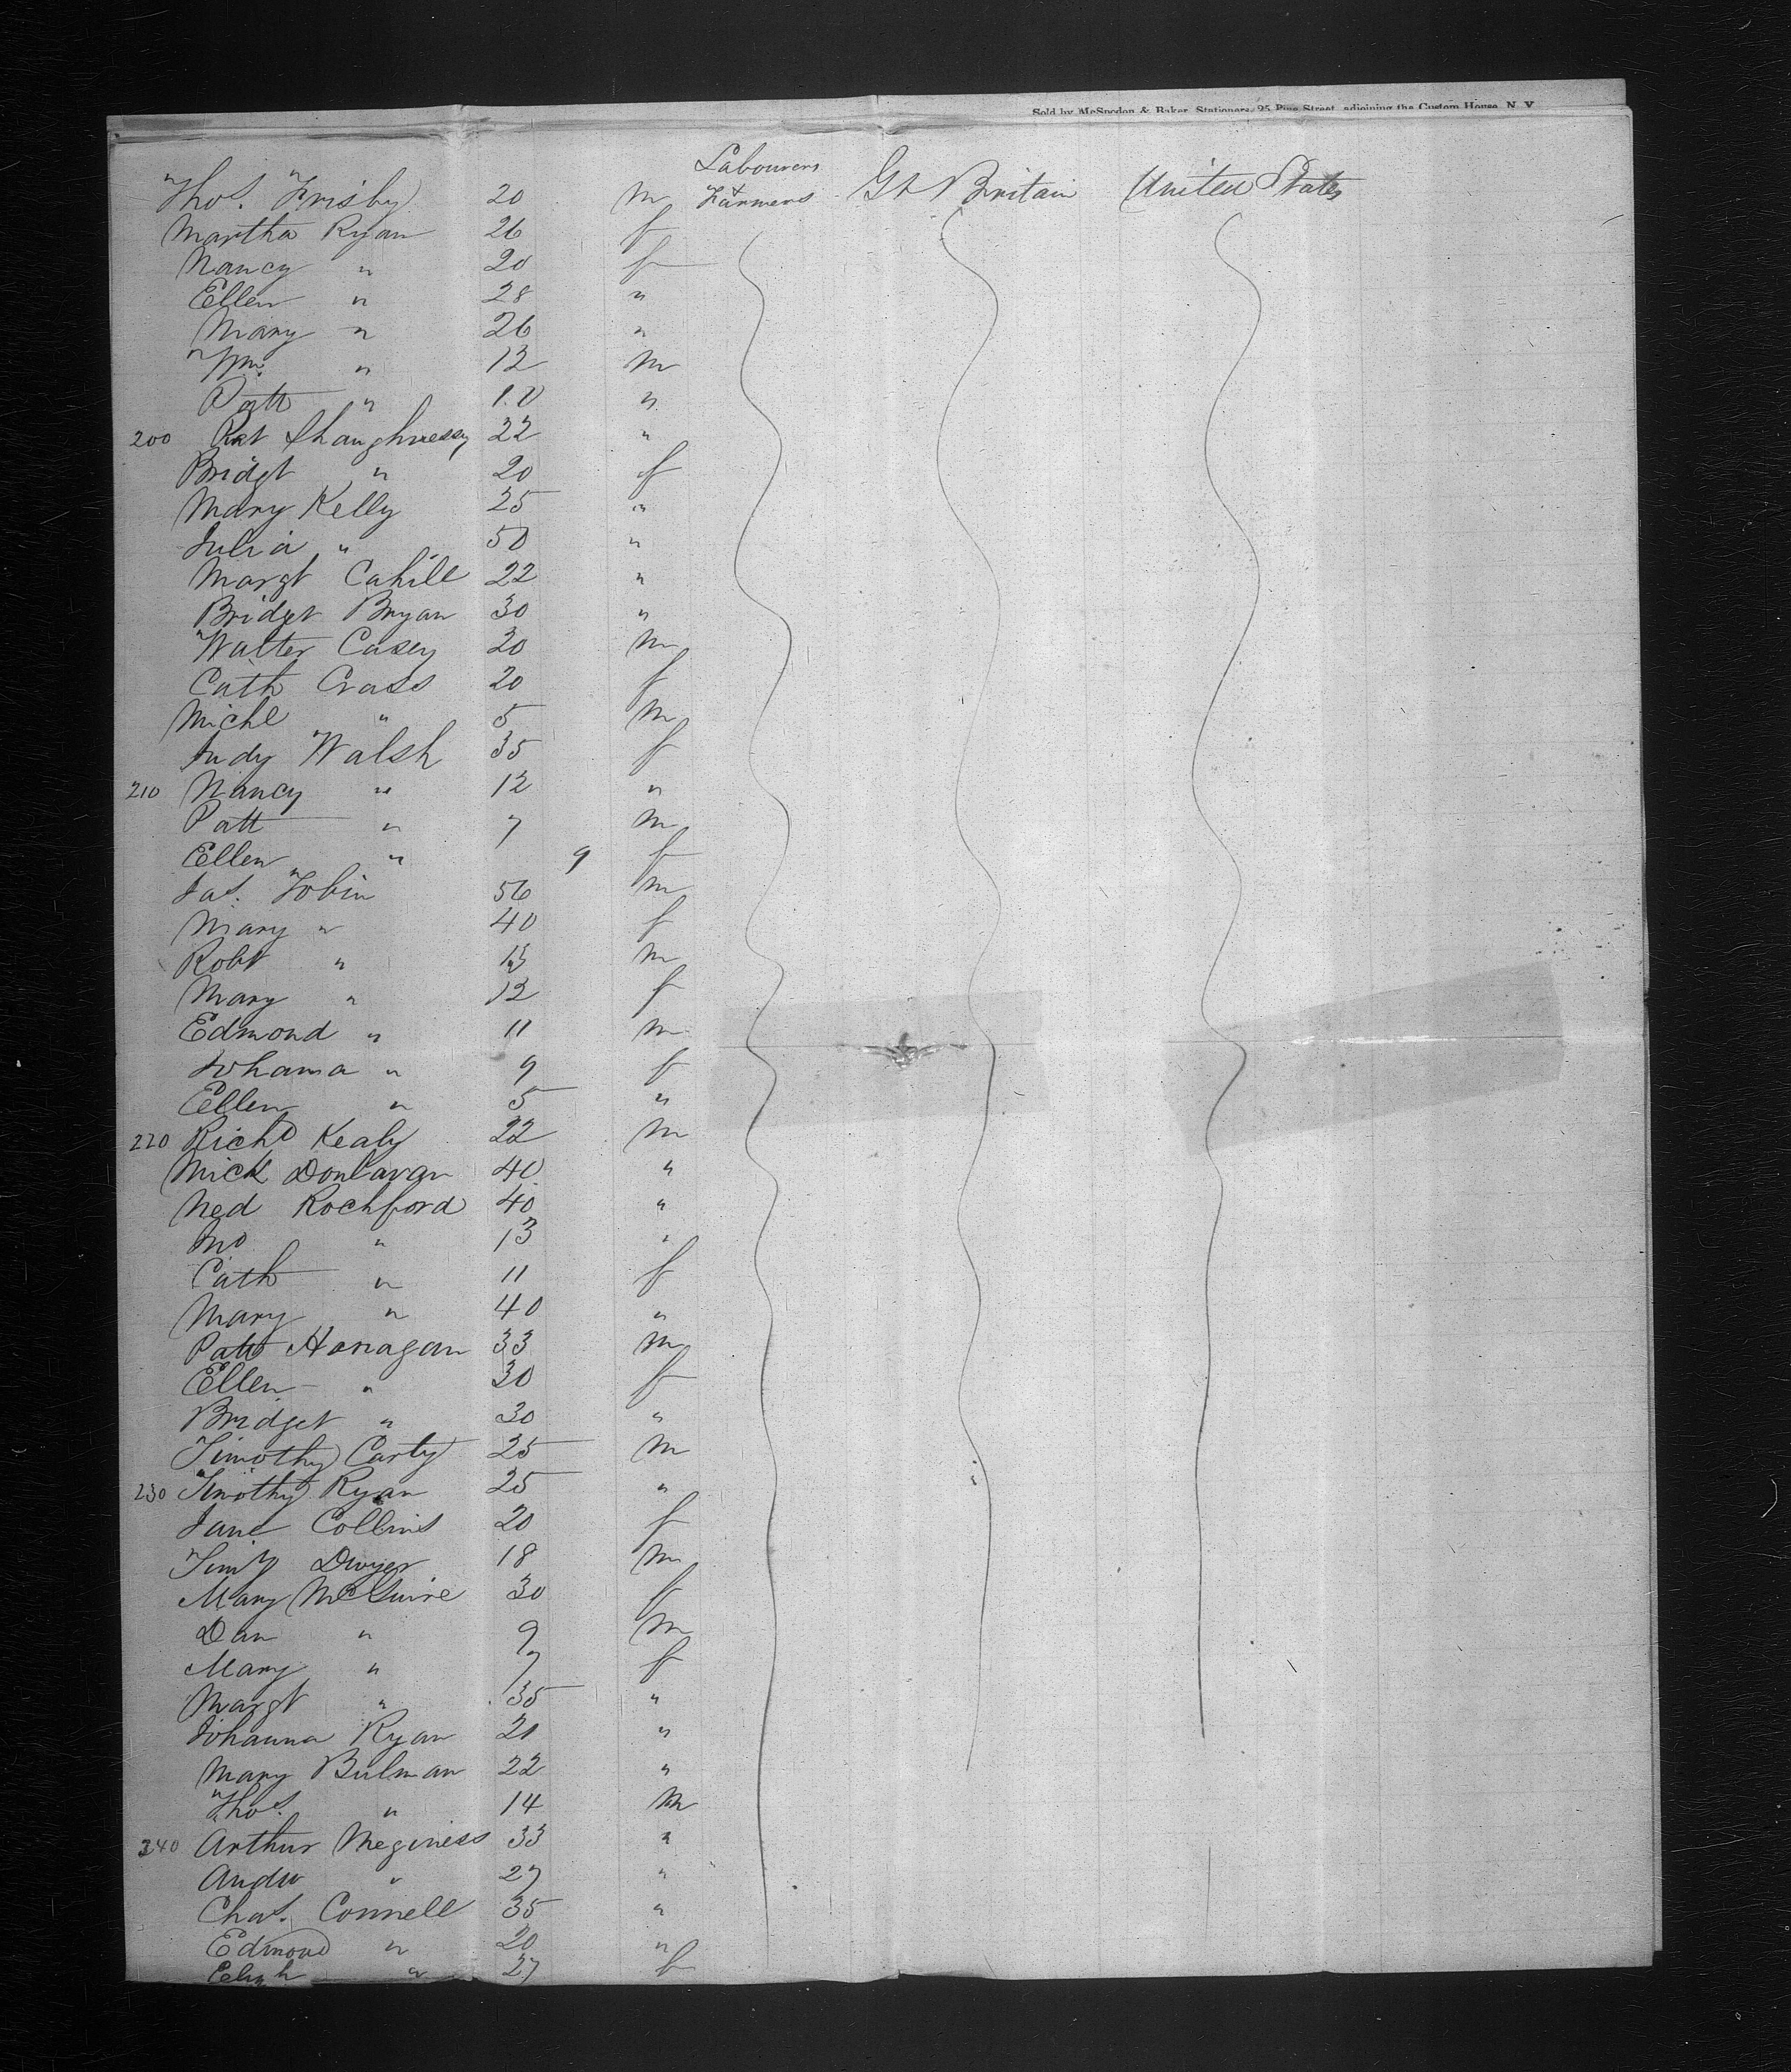 Sold by McSpedon & Baker, Stationers, 25 Pine Street, adjoining the Custom House, N. Y.
Labourers
Thos. Frisby 20 m & Farmers Gt Britain United States
Martha Ryan 26 f
Nancy " 20 f
Ellen " 28 "
Mary " 26 "
Wm. " 12 m
Patt " 10 "
200 Pat Shaughnessy 22 "
Bridgt " 20 f
Mary Kelly 25 "
Julia " 50 "
Margt Cahill 22 "
Bridget Bryan 30 "
Walter Casey 20 m
Cath Crass 20 f
Michl " 5 m
Judy Walsh 35 f
210 Nancy " 12 "
Patt " 7 m
Ellen " 9 f
Jas. Tobin 56 m
Mary " 40 f
Robt " 13 m
Mary " 12 f
Edmond " 11 m
Johanna " 9 f
Ellen " 5 "
220 Richd Kealy 22 m
Mick Donlavan 40 "
Ned Rochford 40 "
Jno " 13 "
Cath " 11 f
Mary " 40 "
Patt Hanagan 33 m
Ellen " 30 f
Bridget " 30 "
Timothy Carty 25 m
230 Timothy Ryan 25 "
Jane Collins 20 f
Timy Dwyer 18 m
Mary McGuire 30 f
Dan " 9 m
Mary " 7 f
Margt " 35 "
Johanna Ryan 21 "
Mary Bulman 22 "
Thos. " 14 m
240 Arthur Meginess 33 "
Andw " 27 "
Chas. Connell 35 "
Edmond " 20 "
Elizh " 27 f